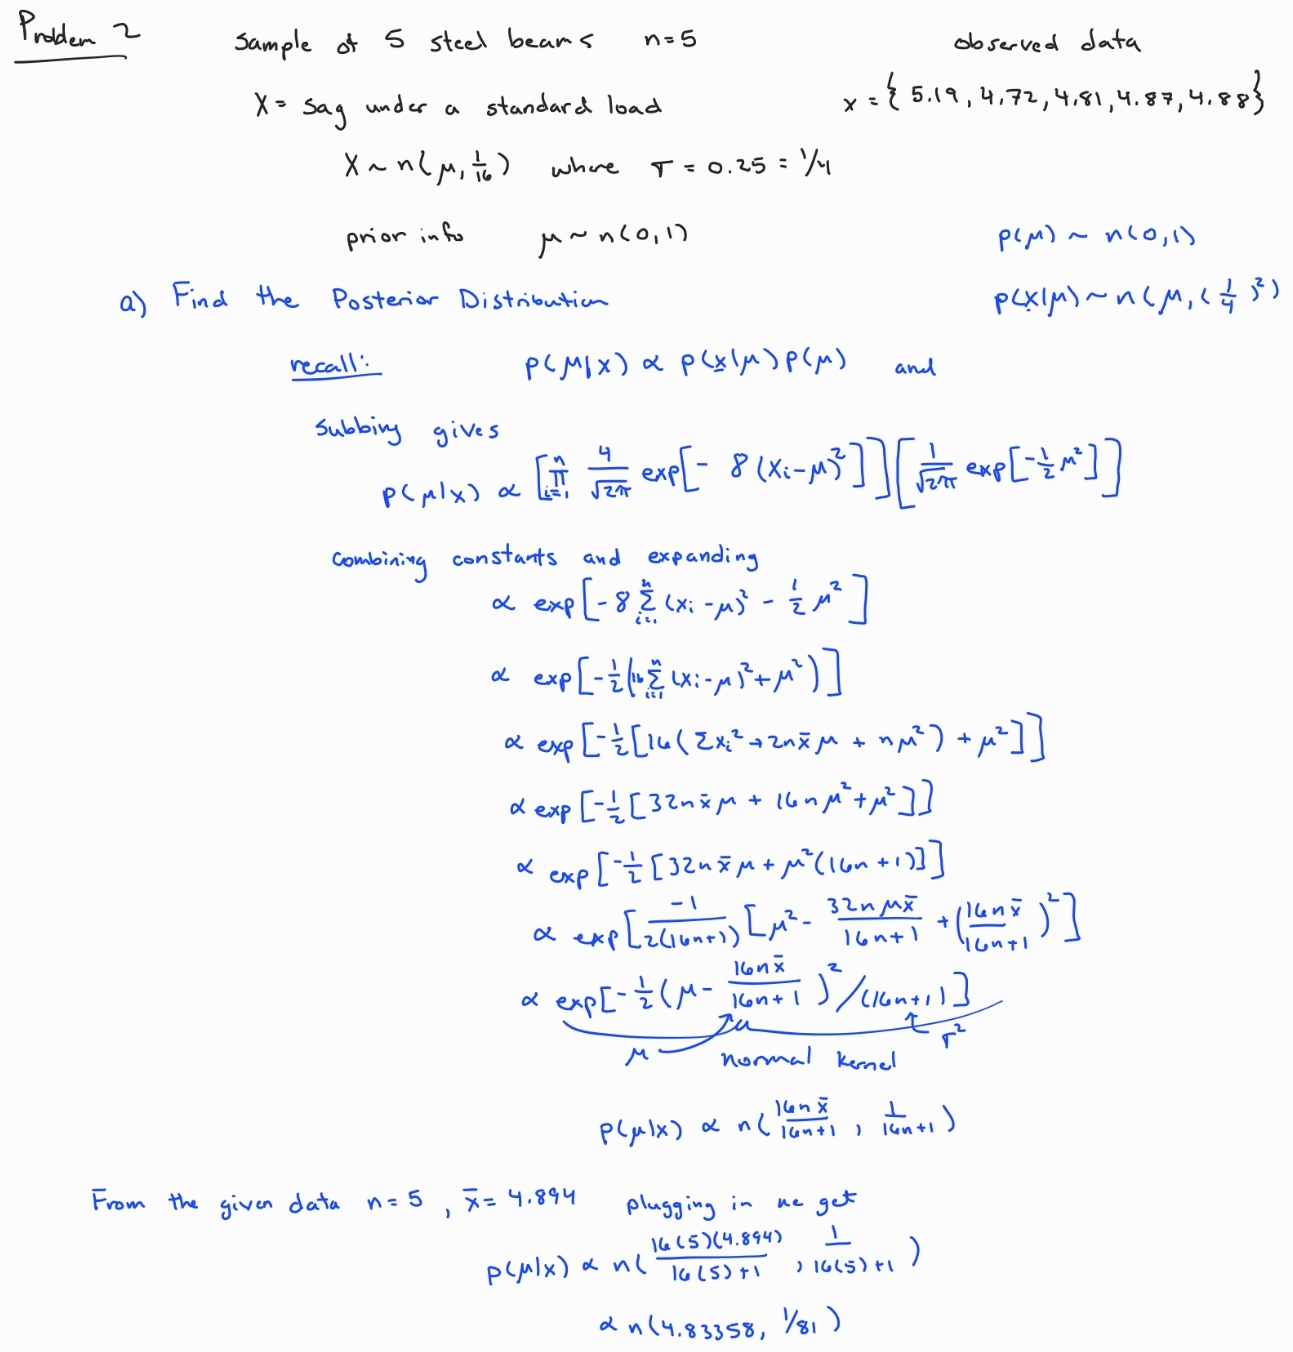 Problem 2 Sample of 5 steel beams n=5 observed data
X = sag under a standard load x = { 5.19, 4.72, 4.81, 4.87, 4.88}
X ~ n(μ, 1/16) where σ = 0.25 = 1/4
prior info μ ~ n(0,1) p(μ) ~ n(0,1)
a) Find the Posterior Distribution p(x|μ) ~ n(μ, (1/4)²)
recall: p(μ|x) ∝ p(x|μ) p(μ) and
Subbing gives
p(μ|x) ∝ [∏_{i=1}^{n} 4/√2π exp[- 8 (xi-μ)²]] [1/√2π exp[-1/2 μ²]]
Combining constants and expanding
∝ exp[-8 Σ_{i=1}^{n} (xi-μ)² - 1/2 μ²]
∝ exp[-1/2 (16 Σ_{i=1}^{n} (xi-μ)² + μ²)]
∝ exp[-1/2 [16( Σxi² + 2nx̄μ + nμ²) + μ²]]
∝ exp[-1/2 [32nx̄μ + 16nμ² + μ²]]
∝ exp[-1/2 [32nx̄μ + μ²(16n+1)]]
∝ exp[-1/2(16n+1) [μ² - 32nμx̄/16n+1 + (16nx̄/16n+1)²]
∝ exp[-1/2 (μ - 16nx̄/16n+1)² /(16n+1)]
μ normal kernel σ²
p(μ|x) ∝ n(16nx̄/16n+1, 1/16n+1)
From the given data n=5, x̄ = 4.894 plugging in we get
p(μ|x) ∝ n(16(5)(4.894)/16(5)+1, 1/16(5)+1)
∝ n(4.83358, 1/81)